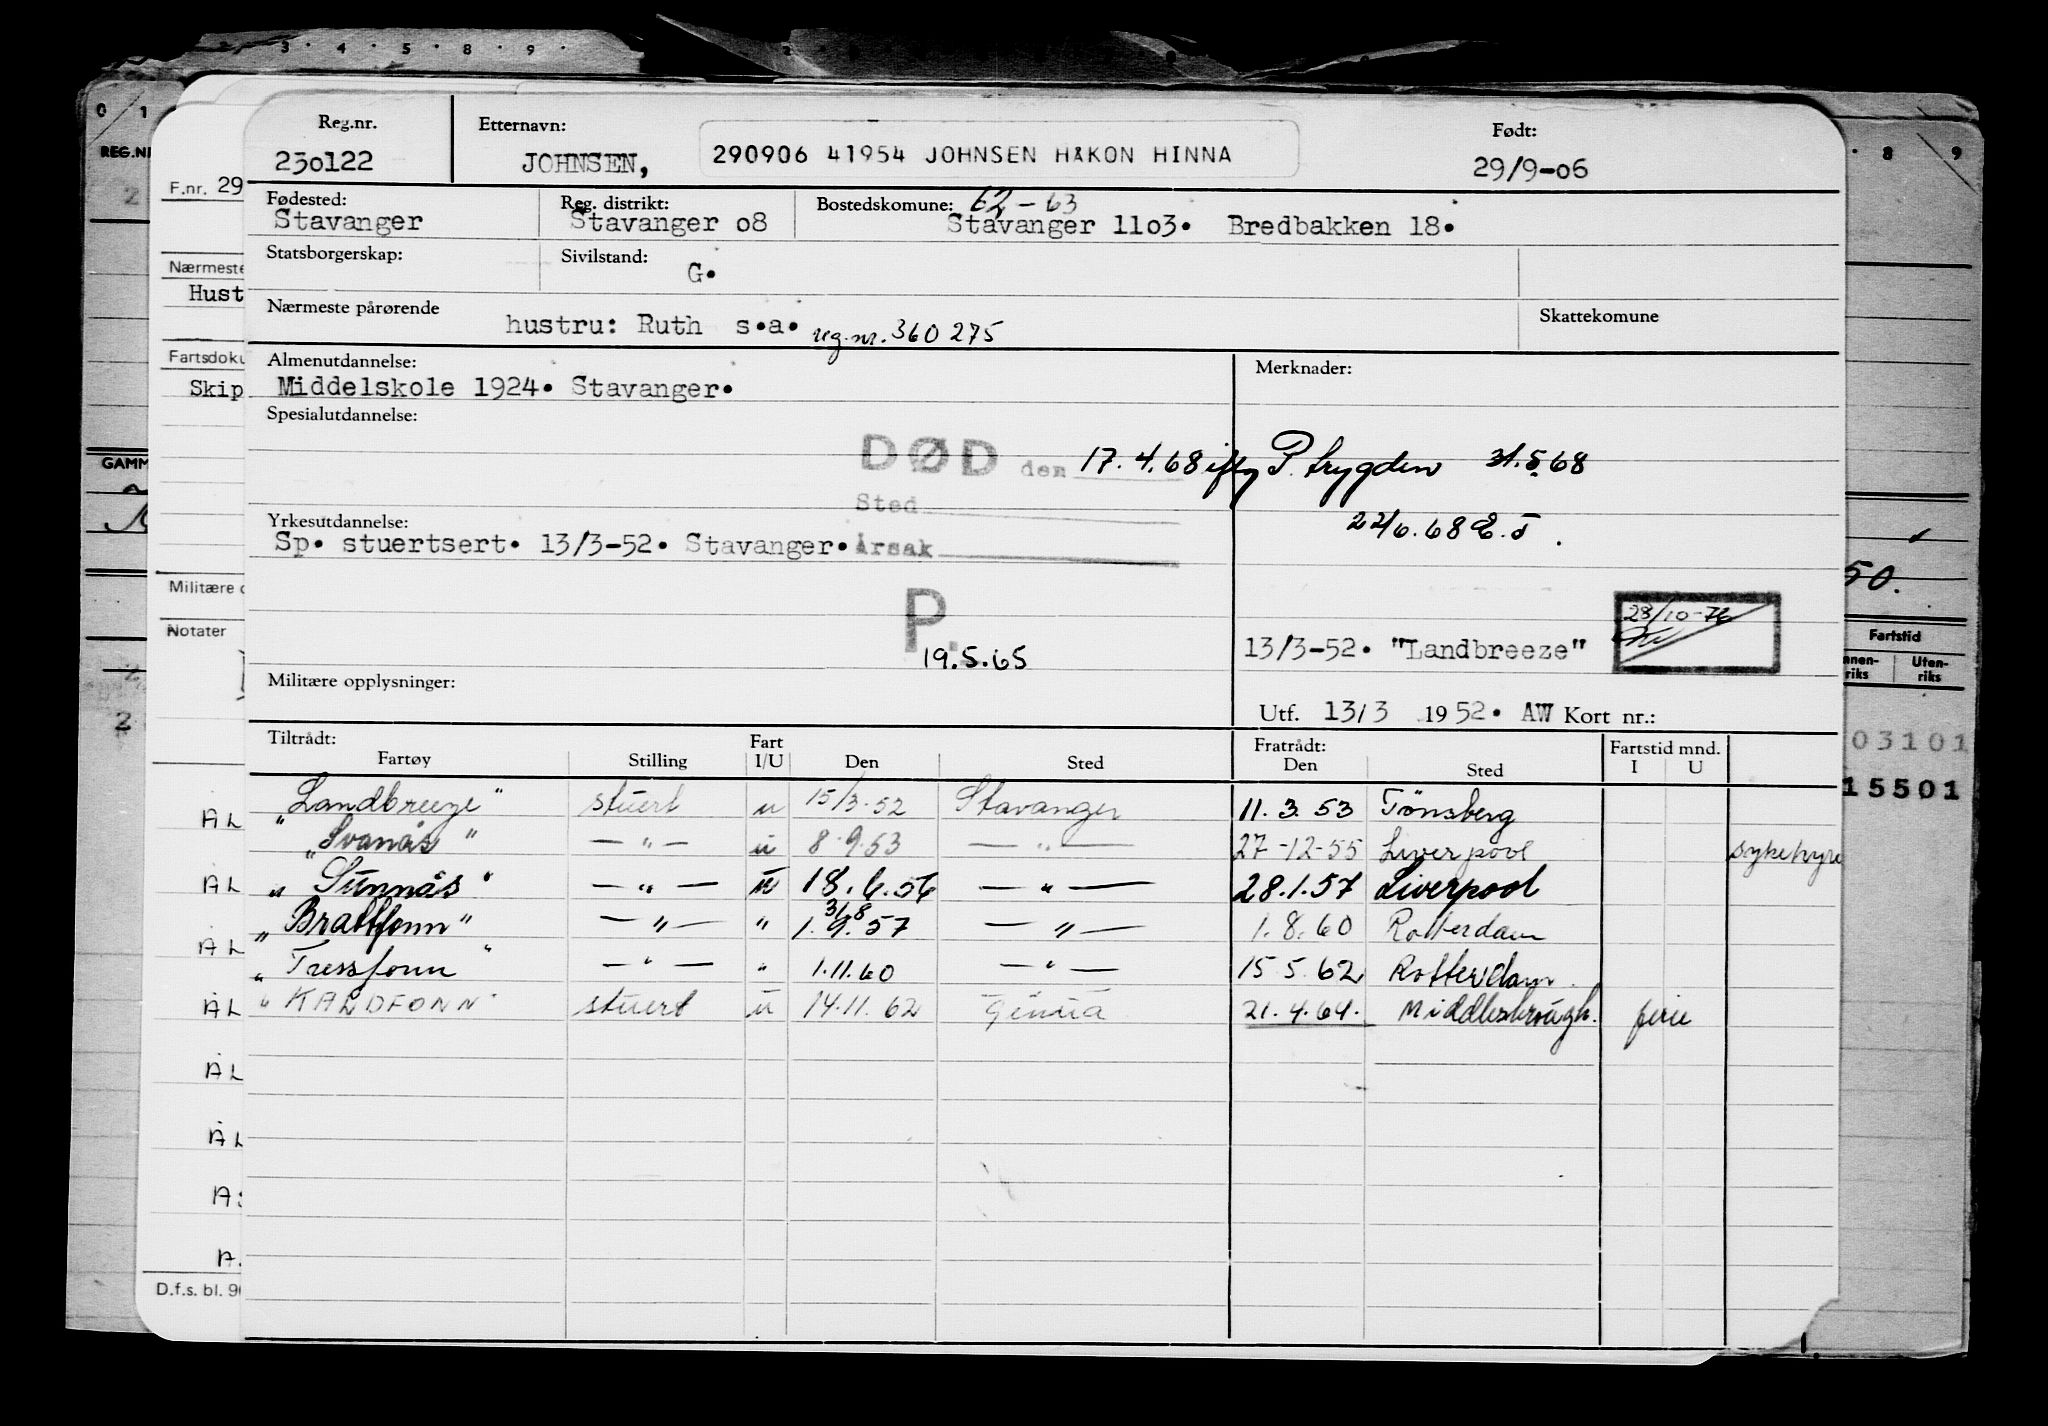 Reg.nr. Etternavn: Født:
230122 JOHNSEN, 290906 41954 JOHNSEN HÅKON HINNA 29/9-06
Fødested: Reg. distrikt: Bostedskomune: 62-63
Stavanger Stavanger 08 Stavanger 1103. Bredbakken 18.
Statsborgerskap: Sivilstand:
G.
Nærmeste pårørende Skattekomune
hustru: Ruth s.a. reg.nr. 360 275
Almenutdannelse: Merknader:
Middelskole 1924. Stavanger.
Spesialutdannelse:
DØD den 17.4.68 P. trygden 31.5.68
Sted
22/6.68
Yrkesutdannelse:
Sp. stuertsert. 13/3-52. Stavanger. Årsak
P.
19.5.65
28/10-76
13/3-52. "Landbreeze"
Militære opplysninger:
Utf. 13/3 1952. AW Kort nr.:
Tiltrådt: Fart Fratrådt: Fartstid mnd.
Fartøy Stilling I/U Den Sted Den Sted I U
"Landbreeze" stuert u 15/3-52 Stavanger 11.3.53 Tönsberg
"Svanås" — " — u 8.9.53 — " — 27-12-55 Liverpool sykehyre
"Sunnås" — " — u 18.6.56 — " — 28.1.57 Liverpool
31.8
"Brattfonn" — " — " 1.9.57 — " — 1.8.60 Rotterdam
"Tressfonn" — " — " 1.11.60 — " — 15.5.62 Rotterdam.
"KALDFONN" stuert u 14.11.62 Genua 21.4.64. Middlesbrough. ferie
F.nr. 29
Nærmeste
Hust
Fartsdoku
Skip
Militære o
Notater
ÅL
ÅL
ÅL
ÅL
ÅL
ÅL
D.f.s. bl. 90
0 1
REG.NR
2
GAMM
2
3 · 4 · 5 · 8 · 9 ·
· 8 · 9
50.
Fartstid
Uten-
riks
03101
15501